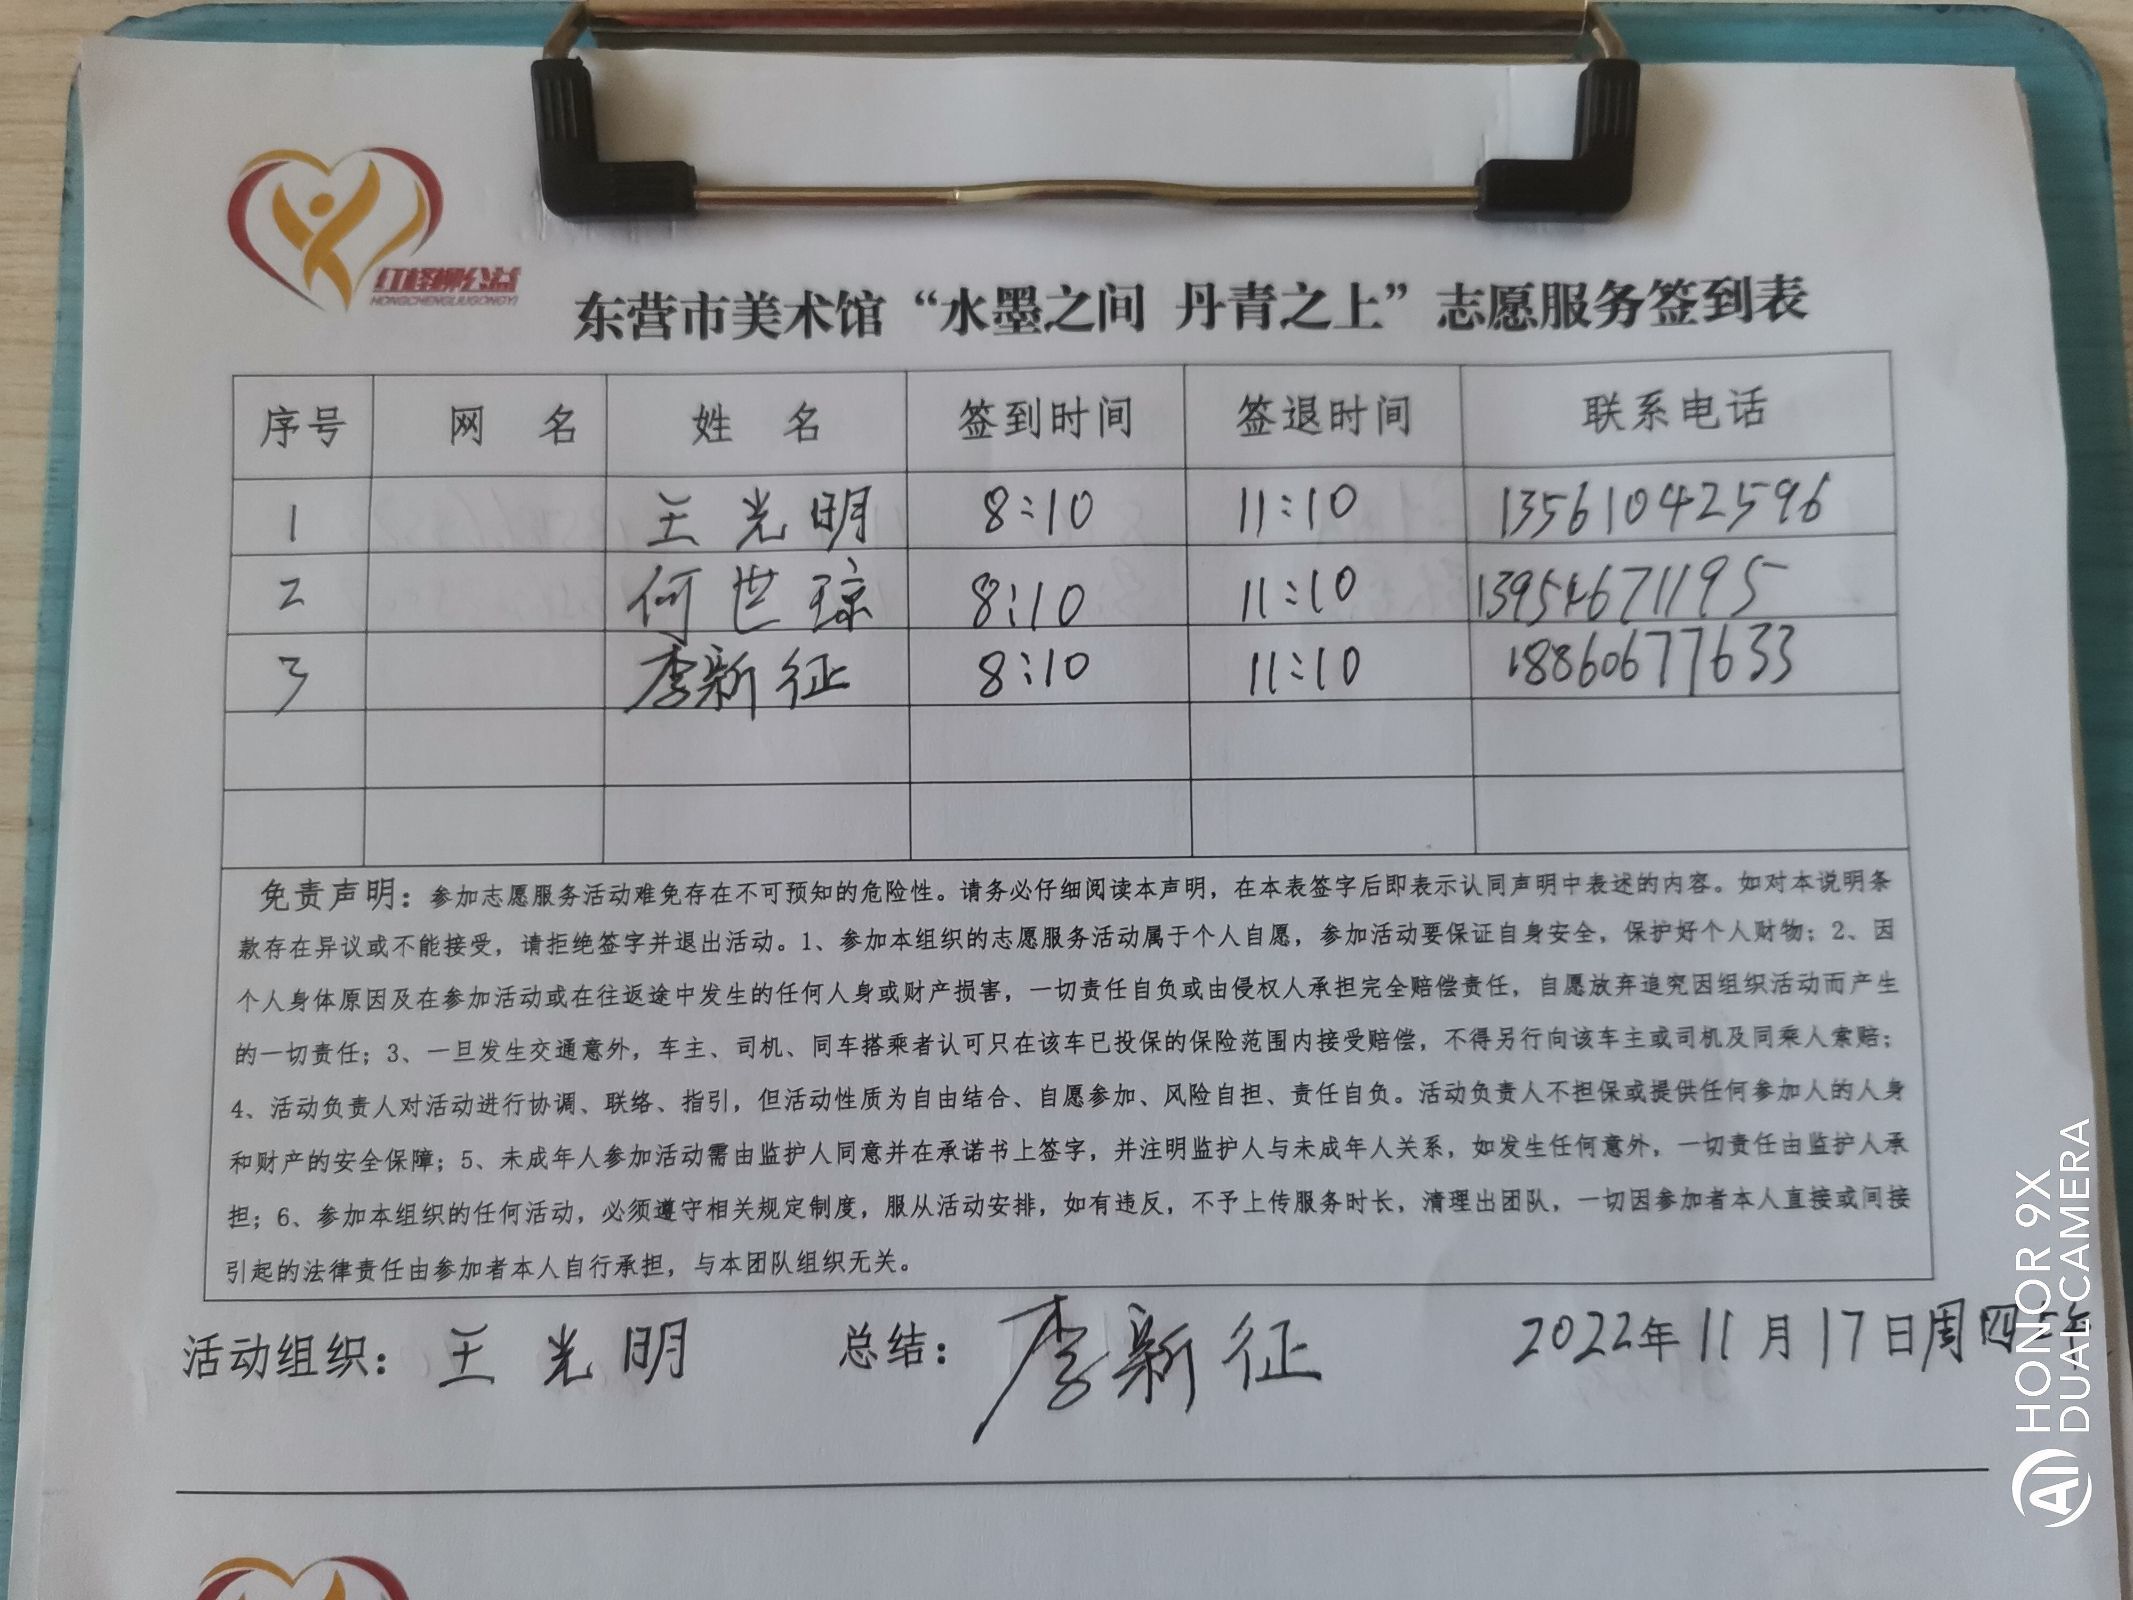 红柽柳公益
HONGCHENGLIUGONGYI
东营市美术馆“水墨之间 丹青之上”志愿服务签到表
序号 网 名 姓 名 签到时间 签退时间 联系电话
1 王光明 8:10 11:10 13561042596
2 何世琼 8:10 11:10 13954671195
3 李新征 8:10 11:10 18860677633
免责声明：参加志愿服务活动难免存在不可预知的危险性。请务必仔细阅读本声明，在本表签字后即表示认同声明中表述的内容。如对本说明条
款存在异议或不能接受，请拒绝签字并退出活动。1、参加本组织的志愿服务活动属于个人自愿，参加活动要保证自身安全，保护好个人财物；2、因
个人身体原因及在参加活动或在往返途中发生的任何人身或财产损害，一切责任自负或由侵权人承担完全赔偿责任，自愿放弃追究因组织活动而产生
的一切责任；3、一旦发生交通意外，车主、司机、同车搭乘者认可只在该车已投保的保险范围内接受赔偿，不得另行向该车主或司机及同乘人索赔；
4、活动负责人对活动进行协调、联络、指引，但活动性质为自由结合、自愿参加、风险自担、责任自负。活动负责人不担保或提供任何参加人的人身
和财产的安全保障；5、未成年人参加活动需由监护人同意并在承诺书上签字，并注明监护人与未成年人关系，如发生任何意外，一切责任由监护人承
担；6、参加本组织的任何活动，必须遵守相关规定制度，服从活动安排，如有违反，不予上传服务时长，清理出团队，一切因参加者本人直接或间接
引起的法律责任由参加者本人自行承担，与本团队组织无关。
活动组织：王光明 总结：李新征 2022年11月17日周四
HONOR 9X
DUAL CAMERA
AI